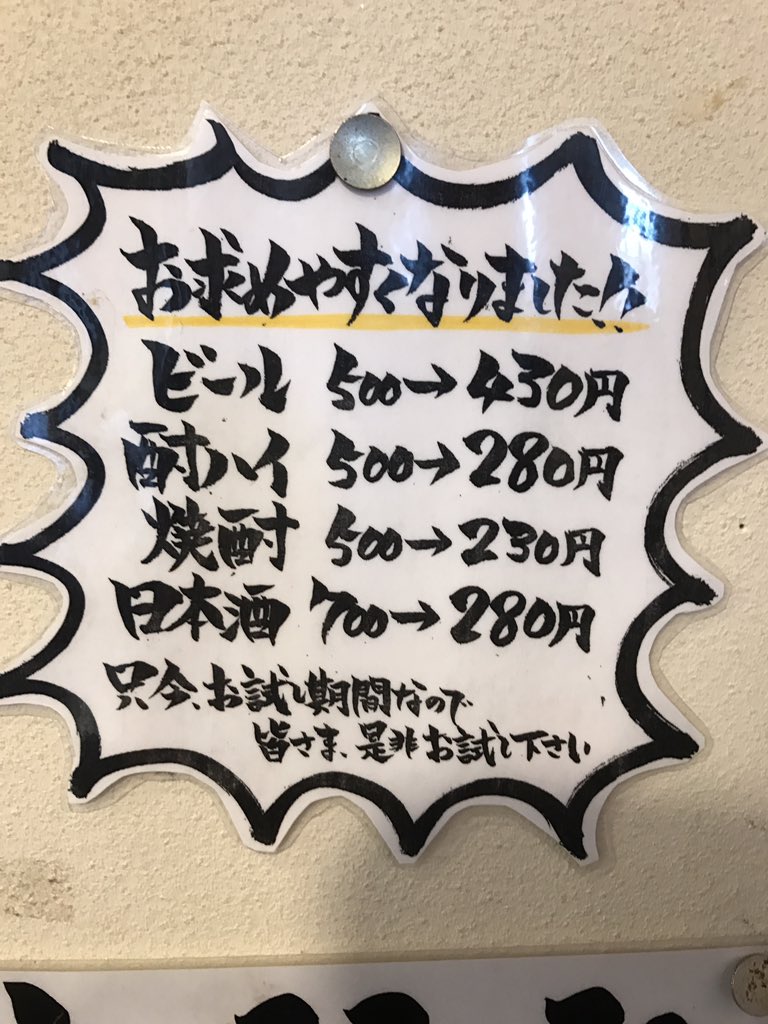 お求めやすくなりました!!
ビール 500→430円
酎ハイ 500→280円
焼酎 500→230円
日本酒 700→280円
只今、お試し期間なので
皆さま、是非お試し下さい